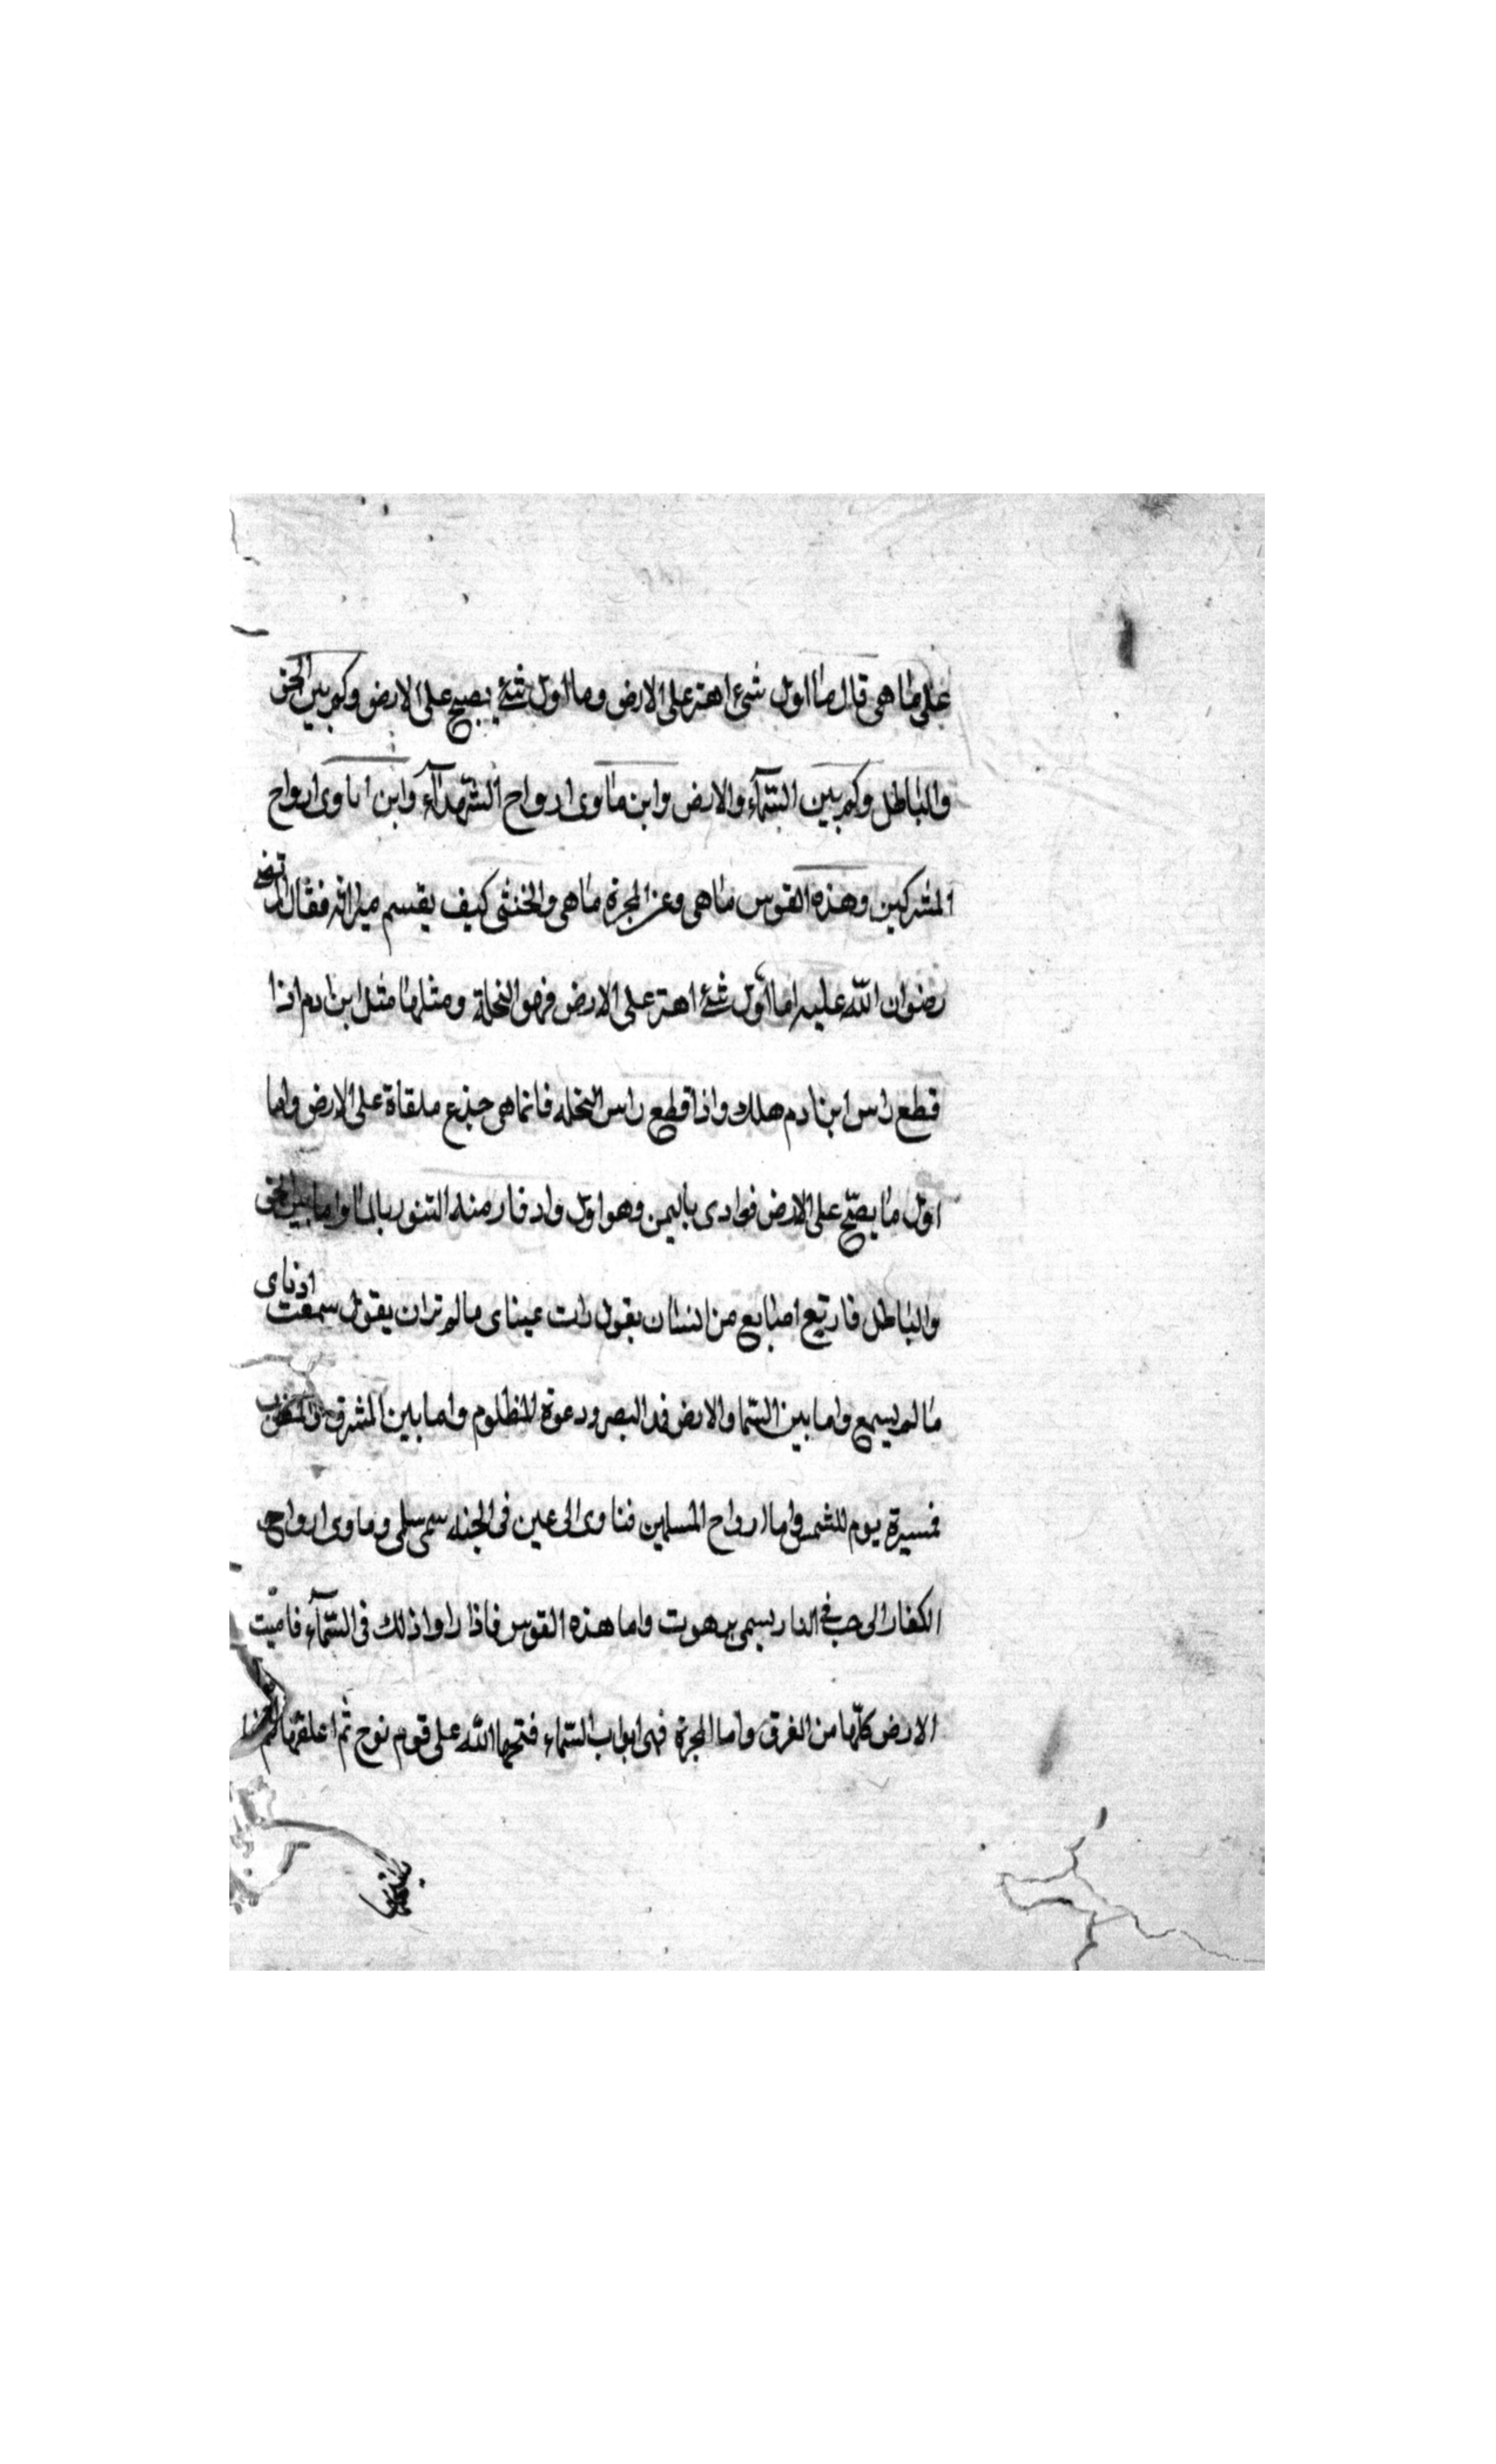 على ما هى قال ما اول شىء اهتز على الارض وما اول شئ يصيح على الارض وكم بين الحق
والباطل وكم بين السّمآء والارض واين ماوى ارواح الشهدآء واين ماوى ارواح
المشركين وهذه القوس ماهى وعن المجرة ماهى والخنثى كيف يقسم ميراثه فقال
رضوان الله عليه اما اوّل شئ اهتز على الارض فهو النخلة ومثلها مثل ابن ادم اذا
قطع راس ابن ادم هلك واذا قطع راس النخله فانما هى جذع ملقاة على الارض واما
اول ما يصيّح على الارض فوادى باليمن وهو اول واد فار منه التنور بالما واما بين الحق
والباطل فاربع اصابع من انسان يقول رات عيناى مالم تر ان يقول سمعت اذناى
ما لم يسمع واما بين السّما والارض فمد البصر ودعوة المظلوم واما بين المشرق والمغرب
فمسيرة يوم للشمس واما ارواح المسلمين فتاوى الى عين فى الجنه سمى سلمى وماوى ارواح
الكفار الى جب فى النار يسمى برهوت واما هذه القوس فاذا راوا ذلك فى السّمآء فامنت
الارض كلّها من الغرق واما المجرة فهى ابواب السّماء فتحها الله على قوم نوح ثم اغلقها